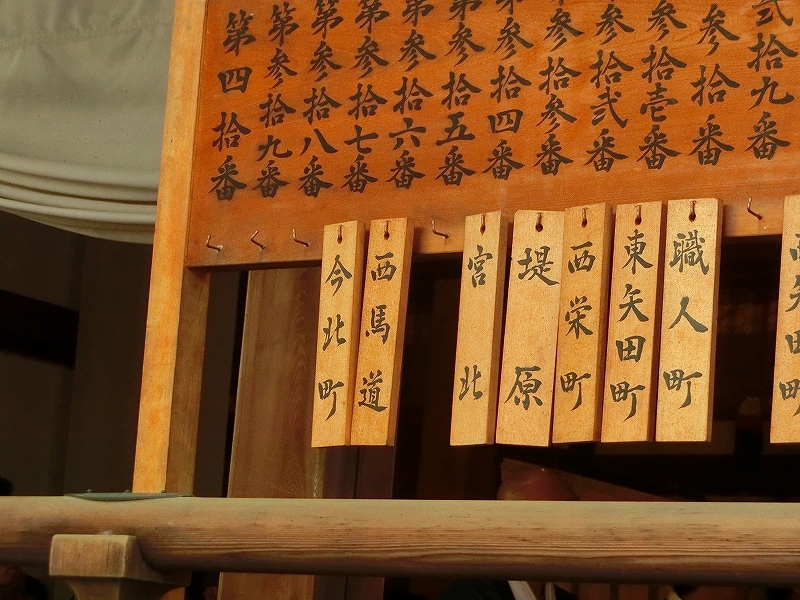 弐拾九番
参拾番
参拾壱番
参拾弐番
参拾参番
第参拾四番
第参拾五番
第参拾六番
第参拾七番
第参拾八番
第参拾九番
第四拾番
西矢田町
職人町
東矢田町
西栄町
堤原
宮北
西馬道
今北町